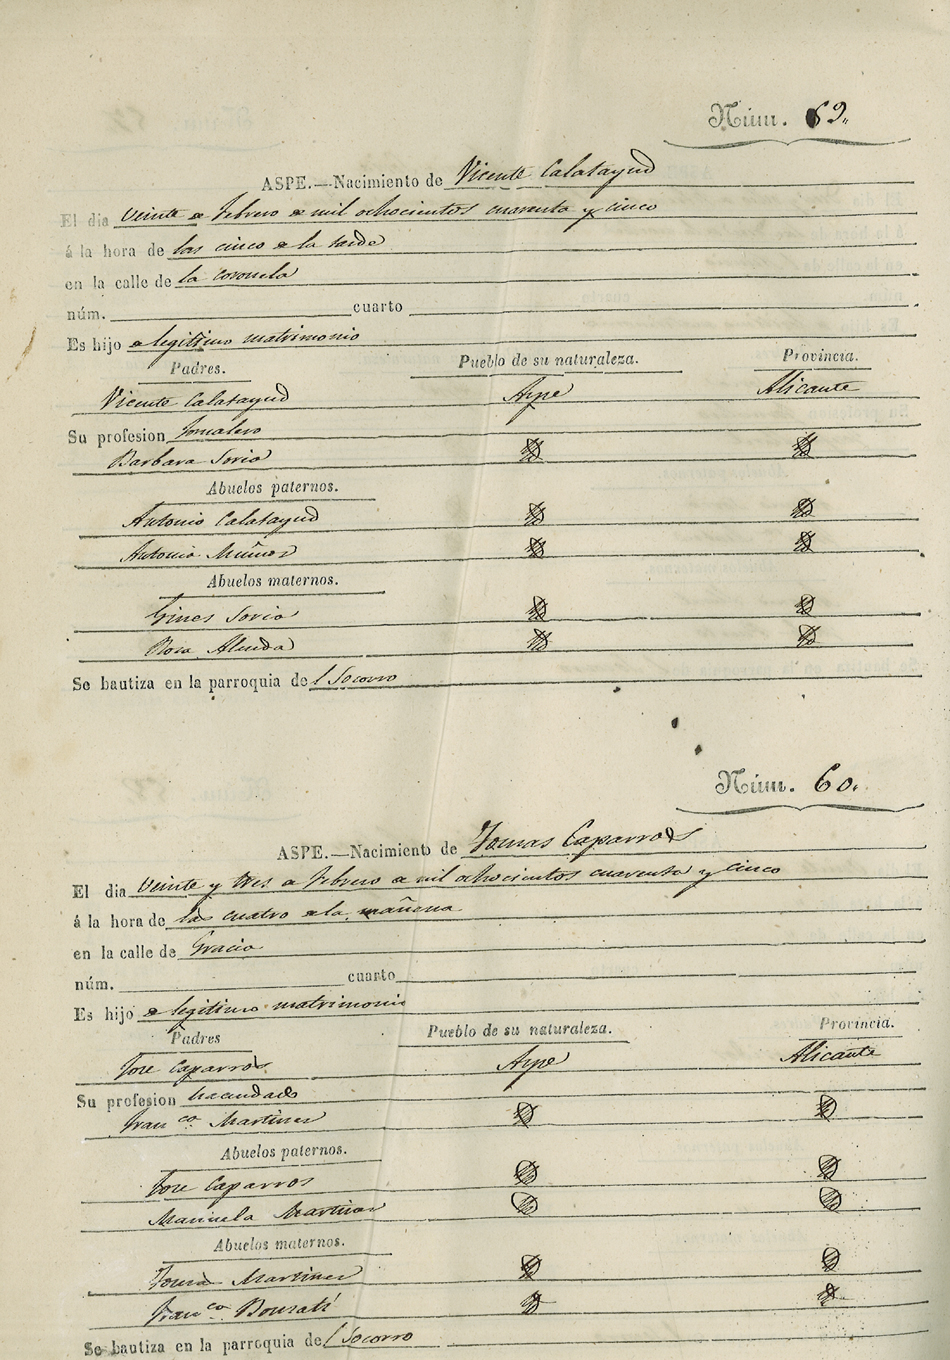 Núm. 59.
ASPE.—Nacimiento de Vicente Calatayud
El dia veinte de febrero de mil ochocientos cuarenta y cinco
á la hora de las cinco de la tarde
en la calle de la coronela
núm. cuarto
Es hijo de legitimo matrimonio
Padres. Pueblo de su naturaleza. Provincia.
Vicente Calatayud Aspe Alicante
Su profesion Jornalero
Barbara Soria
Abuelos paternos.
Antonio Calatayud
Antonia Muñoz
Abuelos maternos.
Gines Soria
Rosa
Se bautiza en la parroquia del Socorro
Núm. 60.
ASPE.—Nacimiento de Tomas Caparros
El dia veinte y tres de febrero de mil ochocientos cuarenta y cinco
á la hora de las cuatro de la mañana
en la calle de Gracia
núm. cuarto
Es hijo de legitimo matrimonio
Padres Pueblo de su naturaleza. Provincia.
Jose Caparros Aspe Alicante
Su profesion hacendado
Fran.ca Martinez
Abuelos paternos.
Jose Caparros
Manuela Martinez
Abuelos maternos.
Tomas Martinez
Fran.ca
Se bautiza en la parroquia del Socorro